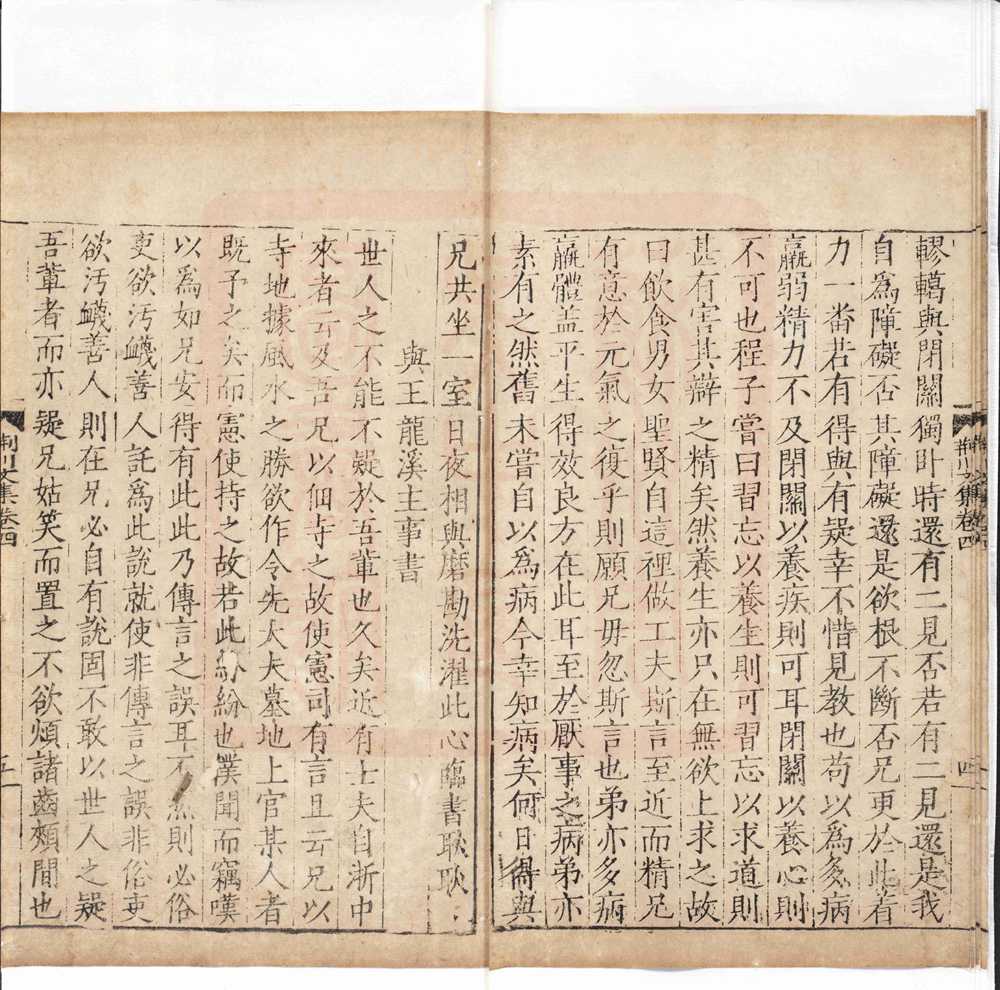 轇轕與閉關獨卧時還有二見否若有二見還是我
自爲障礙否其障礙還是欲根不斷否兄更於此着
力一番若有得與有疑幸不惜見教也苟以爲多病
羸弱精力不及閉關以養疾則可耳閉關以養心則
不可也程子嘗曰習忘以養生則可習忘以求道則
甚有害其辯之精矣然養生亦只在無欲上求之故
曰飲食男女聖賢自這裡做工夫斯言至近而精兄
有意於元氣之復乎則願兄毋忽斯言也弟亦多病
羸體盖平生得效良方在此耳至於厭事之病弟亦
素有之然舊未嘗自以爲病今幸知病矣何日得與
兄共坐一室日夜相與磨勘洗濯此心臨書耿耿
與王龍溪主事書
世人之不能不疑於吾輩也久矣近有士夫自浙中
來者云及吾兄以佃寺之故使憲司有言且云兄以
寺地據風水之勝欲作令先大夫墓地上官某人者
既予之矣而憲使持之故若此紛紛也僕聞而竊嘆
以爲如兄安得有此此乃傳言之誤耳不然則必俗
吏欲汚衊善人託爲此說就使非傳言之誤非俗吏
欲汚衊善人則在兄必自有說固不敢以世人之疑
吾輩者而亦疑兄姑笑而置之不欲煩諸齒頰間也
荆川文集卷四
四
荆川文集卷四
五